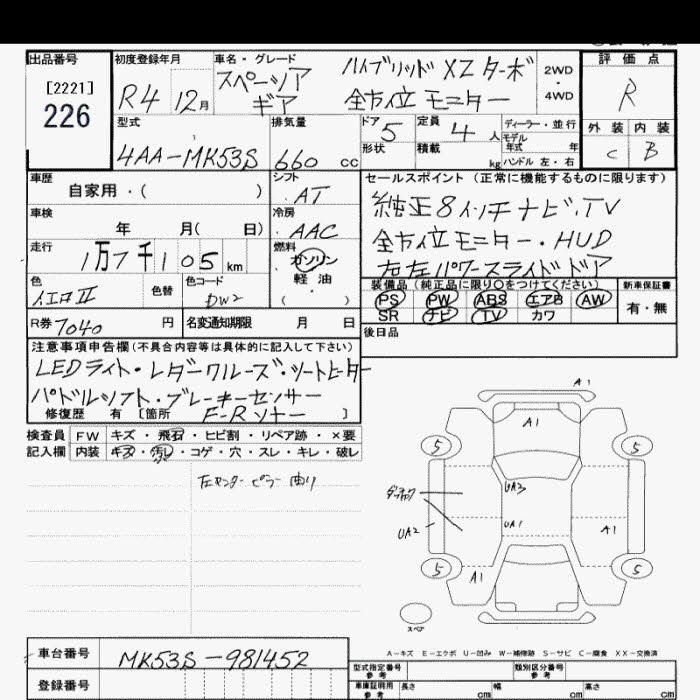 出品番号 初度登録年月 車名・グレード 評価点
[2221]
226
R4 12月
スペーシア ハイブリッド XZ ターボ
ギア 全方位モニター
2WD
・
4WD
R
型式 排気量 ドア 定員 ディーラー・並行 外装 内装
4AA-MK53S 660 cc 5 4人 モデル年式 年 C B
形状 積載 kg ハンドル 左・右
車歴 シフト セールスポイント(正常に機能するものに限ります)
自家用・( ) AT 純正8インチナビ.TV
車検 冷房
年 月( 日) AAC 全方位モニター・HUD
走行 燃料
1万7千105km ガソリン 左右パワースライドドア
・
軽油
( )
色 色替 色コード 装備品(純正品に限り○をつけてください) 新車保証書
イエロⅡ DW2 PS PW ABS エアB AW 有・無
SR ナビ TV カワ
R券 7040 円 名変通知期限 月 日 後日品
注意事項申告欄(不具合内容等は具体的に記入して下さい)
LEDライト・レダークルーズ・シートヒーター
パドルシフト・ブレーキセンサー
修復歴 有 [箇所 F-Rソナー ]
検査員 FW キズ・飛石・ヒビ割・リペア跡・×要
記入欄 内装 キズ・汚れ・コゲ・穴・スレ・キレ・破レ
左センターピラー曲り
A1
A1
5 5
UA3
UA2 UA1 A1
5 5
A1
スペア
A-キズ E-エクボ U-凹み W-補修跡 S-サビ C-腐食 XX-交換済
車台番号 MK53S-981452
型式指定番号 参考 類別区分番号 参考
登録番号 車庫証明用 参考 長さ cm 幅 cm 高さ cm